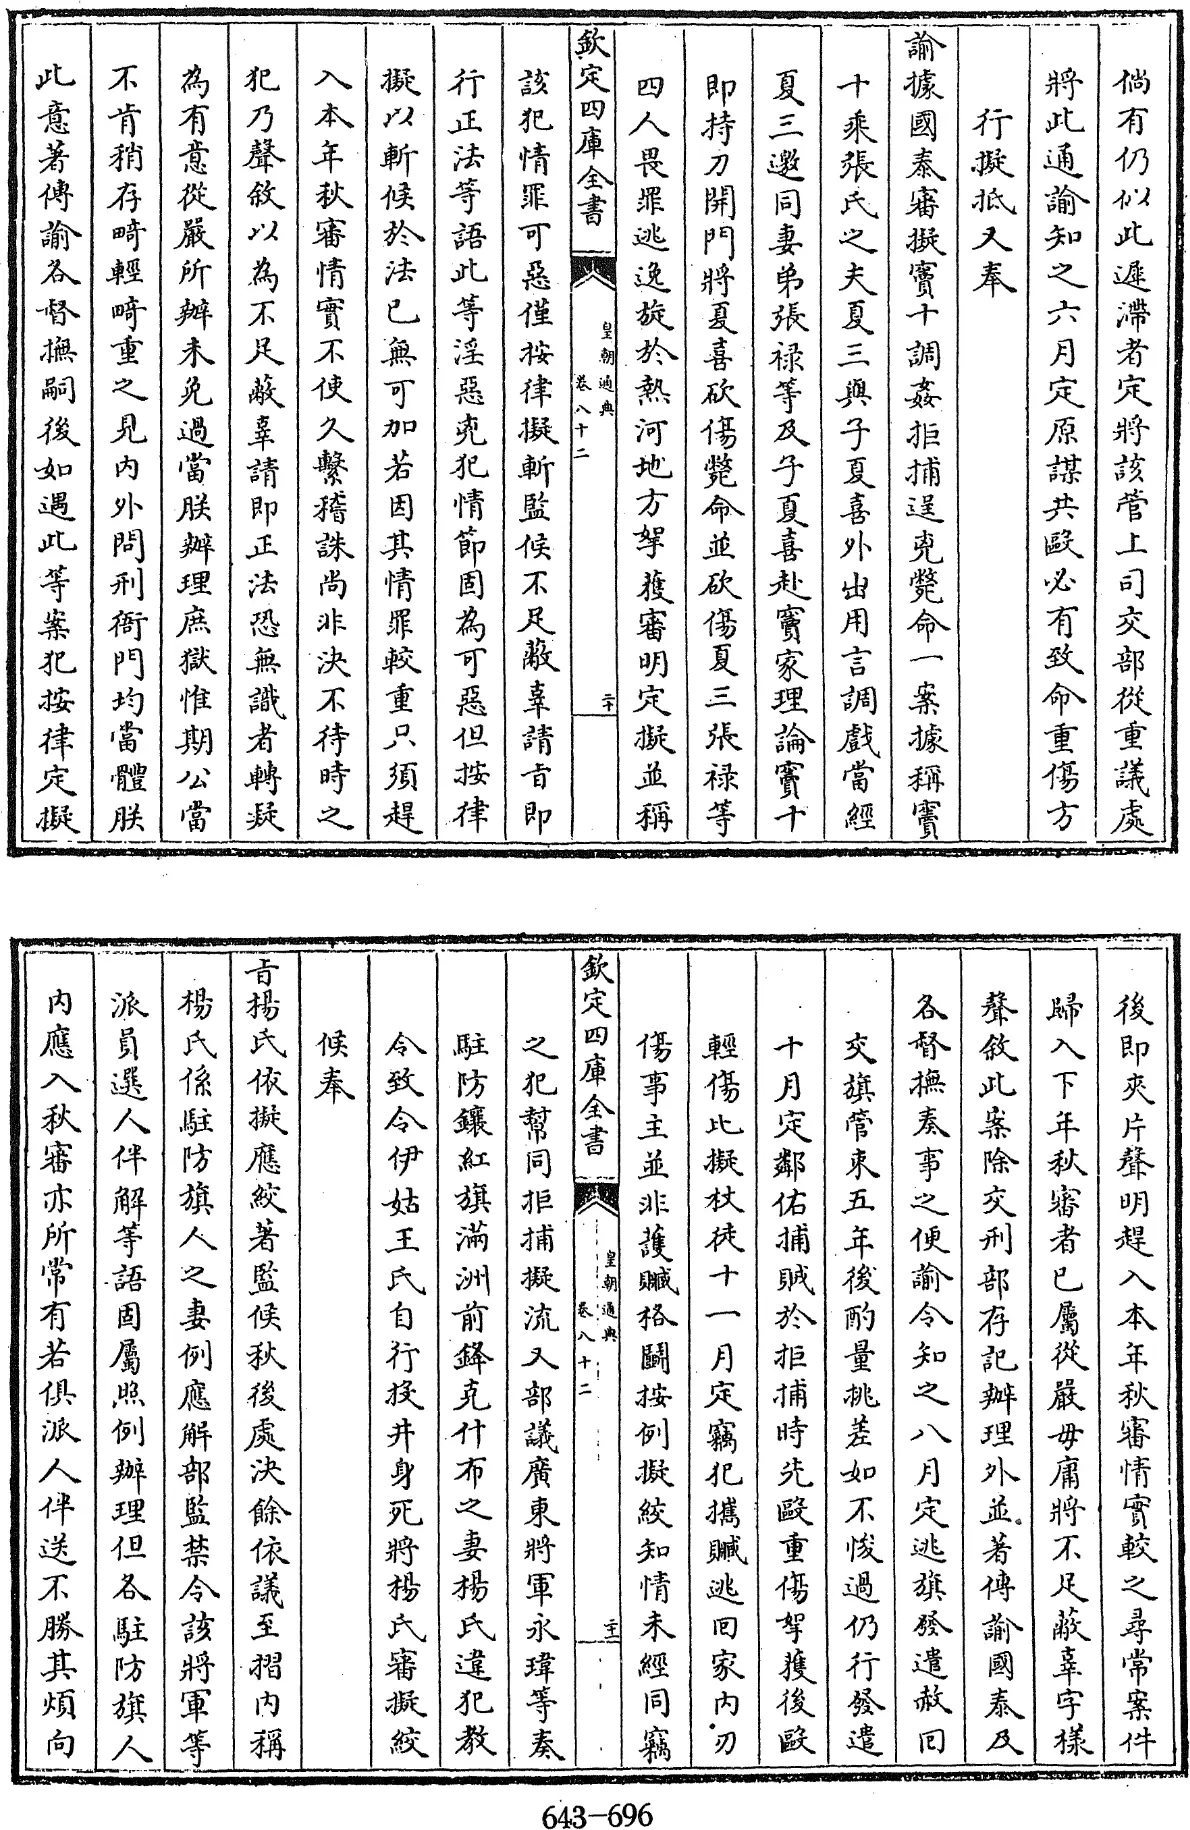 倘有仍似此遲滯者定將該管上司交部從重議處
將此通諭知之六月定原謀共毆必有致命重傷方
行擬抵又奉
諭據國泰審擬竇十調姦拒捕逞兇斃命一案據稱竇
十乘張氏之夫夏三與子夏喜外出用言調戲當經
夏三邀同妻弟張祿等及子夏喜赴竇家理論竇十
即持刀開門將夏喜砍傷斃命並砍傷夏三張祿等
四人畏罪逃逸旋於熱河地方拏獲審明定擬並稱
欽定四庫全書
皇朝通典
卷八十二
二十
該犯情罪可惡僅按律擬斬監候不足蔽辜請旨即
行正法等語此等淫惡兇犯情節固為可惡但按律
擬以斬候於法已無可加若因其情罪較重只須趕
入本年秋審情實不使久繫稽誅尚非決不待時之
犯乃聲敘以為不足蔽辜請即正法恐無識者轉疑
為有意從嚴所辦未免過當朕辦理庶獄惟期公當
不肯稍存畸輕畸重之見內外問刑衙門均當體朕
此意著傳諭各督撫嗣後如遇此等案犯按律定擬
後即夾片聲明趕入本年秋審情實較之尋常案件
歸入下年秋審者已屬從嚴毋庸將不足蔽辜字樣
聲敘此案除交刑部存記辦理外並著傳諭國泰及
各督撫奏事之便諭令知之八月定逃旗發遣赦回
交旗管束五年後酌量挑差如不悛過仍行發遣
十月定鄰佑捕賊於拒捕時先毆重傷拏獲後毆
輕傷比擬杖徒十一月定竊犯攜贓逃回家內刃
傷事主並非護贓格鬭按例擬絞知情未經同竊
欽定四庫全書
皇朝通典
卷八十二
二十一
之犯幫同拒捕擬流又部議廣東將軍永瑋等奏
駐防鑲紅旗滿洲前鋒克什布之妻楊氏違犯教
令致令伊姑王氏自行投井身死將楊氏審擬絞
候奉
旨楊氏依擬應絞著監候秋後處決餘依議至摺內稱
楊氏係駐防旗人之妻例應解部監禁令該將軍等
派員選人伴解等語固屬照例辦理但各駐防旗人
內應入秋審亦所常有若俱派人伴送不勝其煩向
643-696